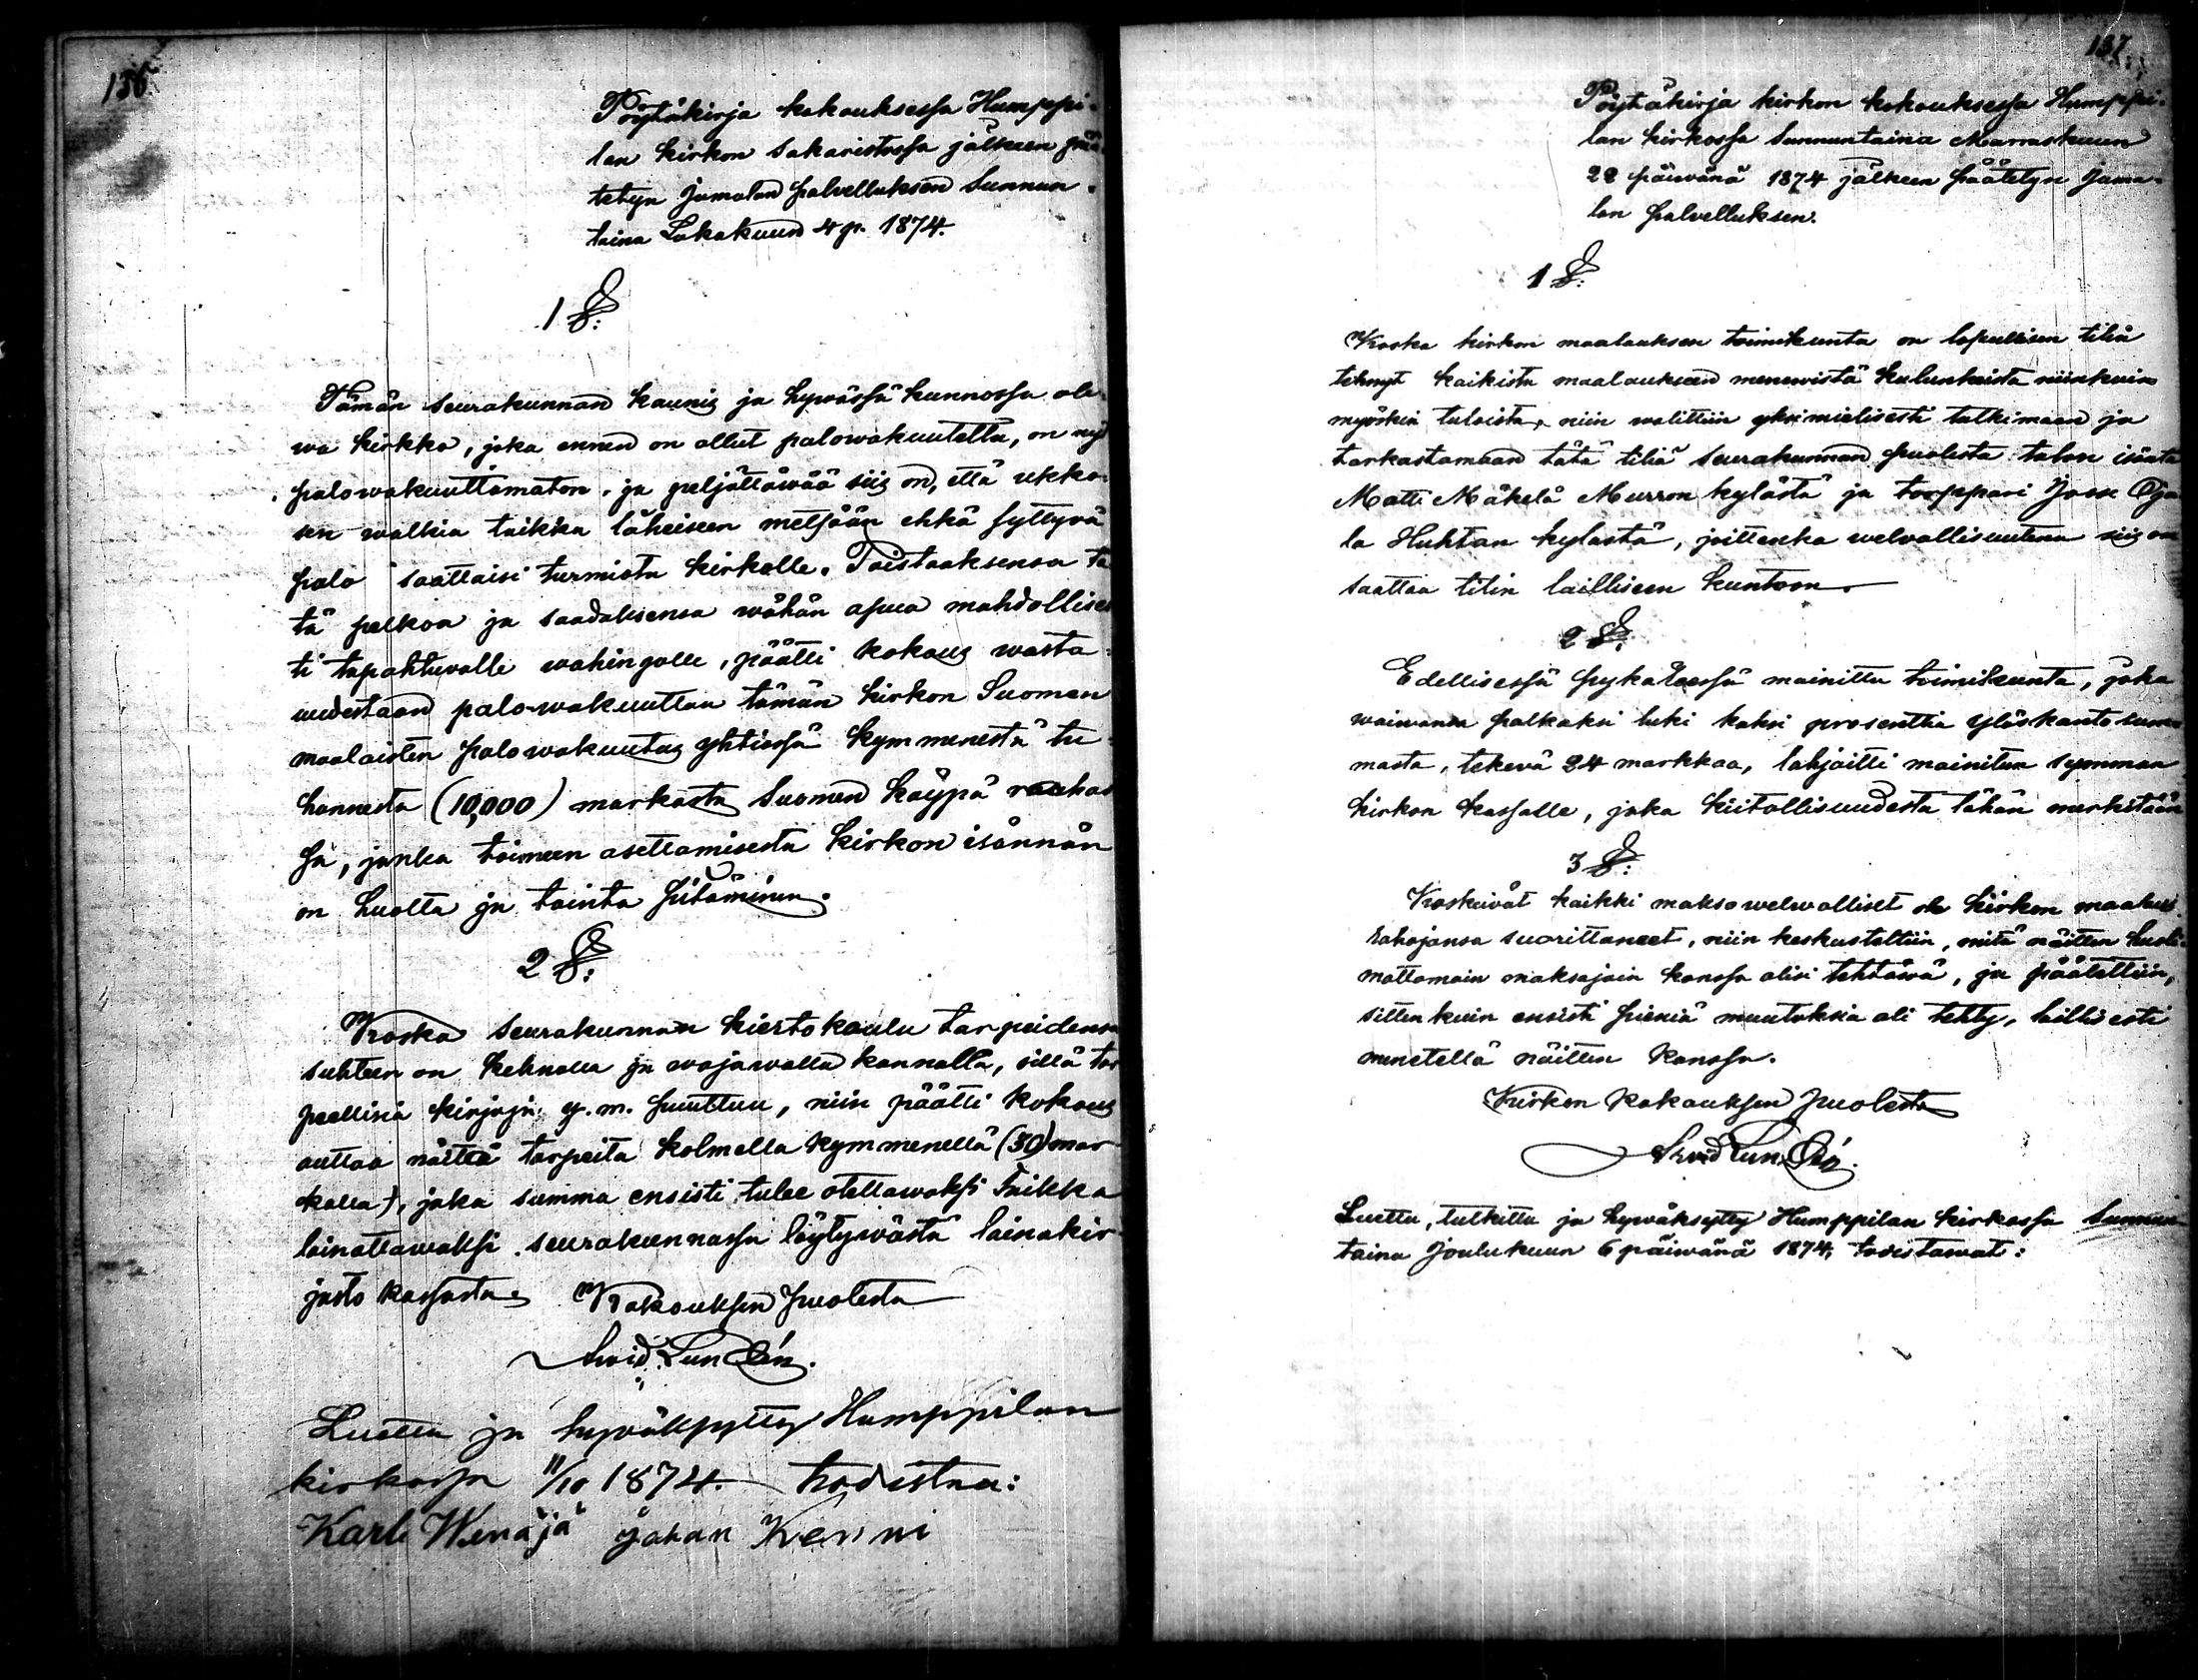 136
Pöytäkirja kokouksessa Humppi-
lan kirkon sakaristossa jälkeen pää-
tetyn Jumalan palvelluksen Sunnun-
taina Lokakuun 4 p. 1874.
1 §:
Tämän seurakunnan kaunis ja hyvässä kunnossa ole-
wa kirkko, joka ennen on ollut palowakuutettu, on nyt
palowakuuttamaton, ja peljättäwää siis on, että ukko-
sen walkia taikka läheiseen metsään ehkä syttyvä
palo saattaisi turmiota kirkolle. Poistaaksensa tä-
tä pelkoa ja saadaksensa wähän apua mahdollises-
ti tapahtuvalle wahingolle, päätti kokous wasta-
uudestaan palo-wakuuttaa tämän kirkon Suomen
maalaisten palowakuutus yhtiössä kymmenestä tu-
hannesta (10,000) markasta Suomen käypä rahas-
sa, jonka toimeen asettamisesta kirkon isännän
on huolta ja tointa pitäminen.
2 §:
Koska seurakunnan kiertokoulu tarpeidensa
suhteen on kehnolla ja wajawalla kannalla, sillä tar-
peellisia kirjoja y. m. puuttuu, niin päätti kokous
auttaa näitä tarpeita kolmella kymmenellä (30) mar-
kalla), joka summa ensisti tulee otettawaksi taikka
lainattawaksi seurakunnassa löytyvästä lainakir-
jasto kassasta. Kokouksen puolesta
Arvid Lundén.
Luettu ja hyväksytty Humppilan
kirkossa 11/10 1874. todistaa:
Karle Wenäjä Johan Kenni
137
Pöytäkirja kirkon kokouksessa Humppi-
lan kirkossa Sunnuntaina Marraskuun
22 päivänä 1874 jälkeen päätetyn Juma-
lan palvelluksen.
1 §:
Koska kirkon maalauksen toimikunta on lopullisen tilin
tehnyt kaikista maalaukseen menewistä kulunkeista niinkuin
myöskin tuloista, niin walittiin yksimielisesti tutkimaan ja
tarkastamaan tätä tiliä seurakunnan puolesta talon isäntä
Matti Mäkelä Murron kylästä ja torppari Joose Oja-
la Huhtan kylästä, joittenka welvollisuutena siis on
saattaa tilin lailliseen kuntoon.
2 §:
Edellisessä pykäleessä mainittu toimikunta, joka
waiwansa palkaksi luki kaksi prosenttia ylöskanto sum-
masta, tekevä 24 markkaa, lahjoitti mainitun symman
kirkon kassalle, joka kiitollisuudesta tähän merkitään
3 §:
Koskeivät kaikki maksowelwolliset ole kirkon maalaus
rahojansa suorittaneet, niin keskusteltiin, mitä näitten huoli-
mattomain maksajain kanssa olisi tehtäwä, ja päätettiin,
sitten kuin ensisti pieniä muutoksia oli tehty, laillisesti
menetellä näitten kanssa.
Kirkon kokouksen puolesta
Arvid Lundén.
Luettu, tutkittu ja hywäksytty Humppilan kirkossa Sunnun-
taina Joulukuun 6 päiwänä 1874, todistawat: